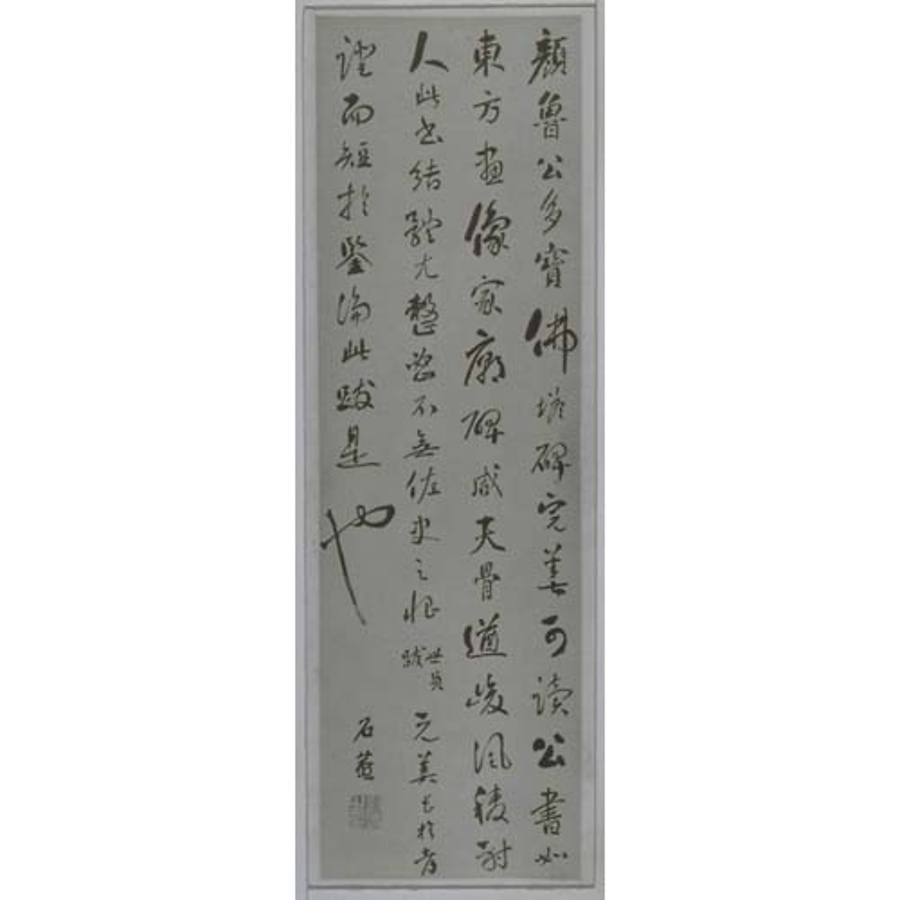 顏魯公多寶佛塔碑完善可讀公書如
東方畫像家廟碑咸天骨遒峻風稜射
人此書結體尤整密不無佐史之恨世貞跋元美長於考
證而短於鑒論此跋是也
石菴